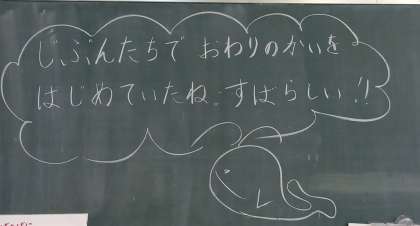 じぶんたちで おわりのかいを
はじめていたね。すばらしい!!